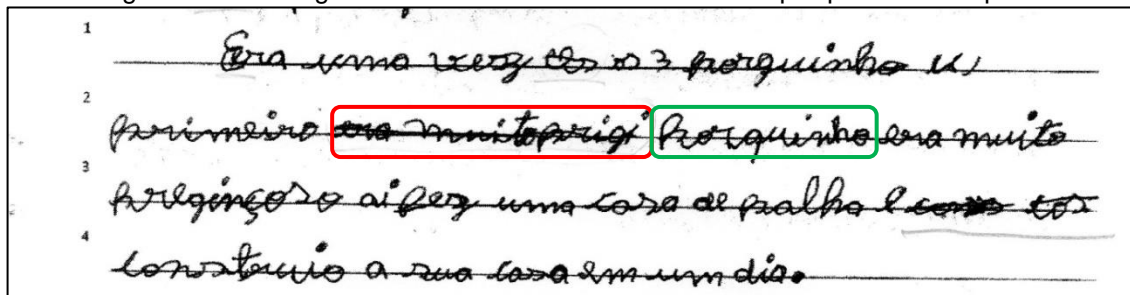 1
Era uma vez os 3 porquinho u,
2
primeiro era muito prigi porquinho era muito
3
preginçoso ai fez uma casa de palha e
4
construio a sua casa em um dia.